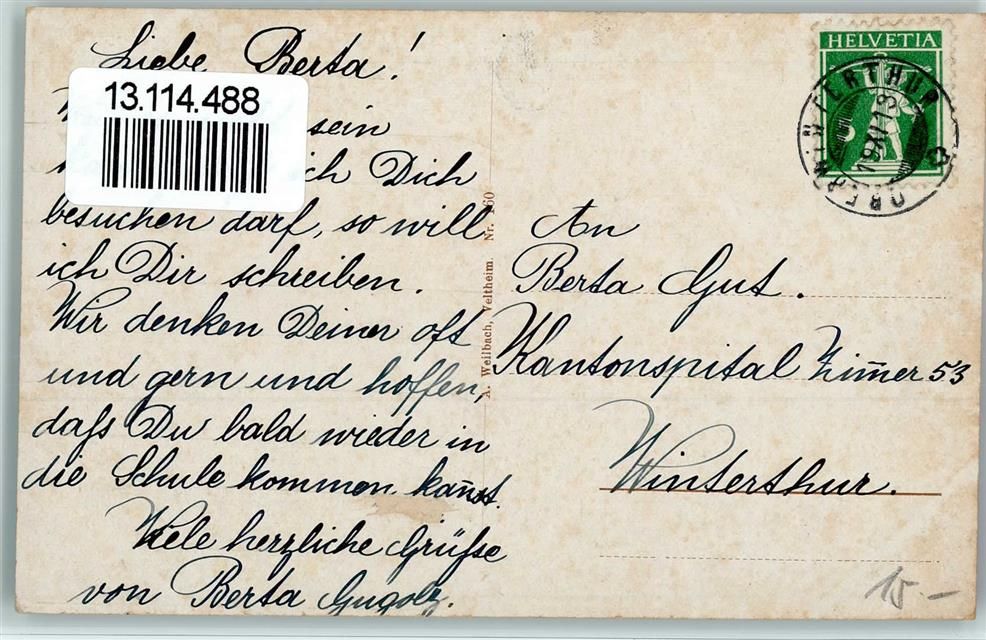 Liebe Berta!
13.114.488
sein
ich Dich
besuchen darf, so will
ich Dir schreiben.
Wir denken Deiner oft
und gern und hoffen,
daſs Du bald wieder in
die Schule kommen kan̄st.
Viele herzliche Grüſse
von Berta Gugolz.
A. Weilbach, Veltheim. Nr. 160
HELVETIA
OBERWINTERTHUR
19.XI.13
An
Berta Gut.
Kantonspital Zim̄er 53
Winterthur.
15.-